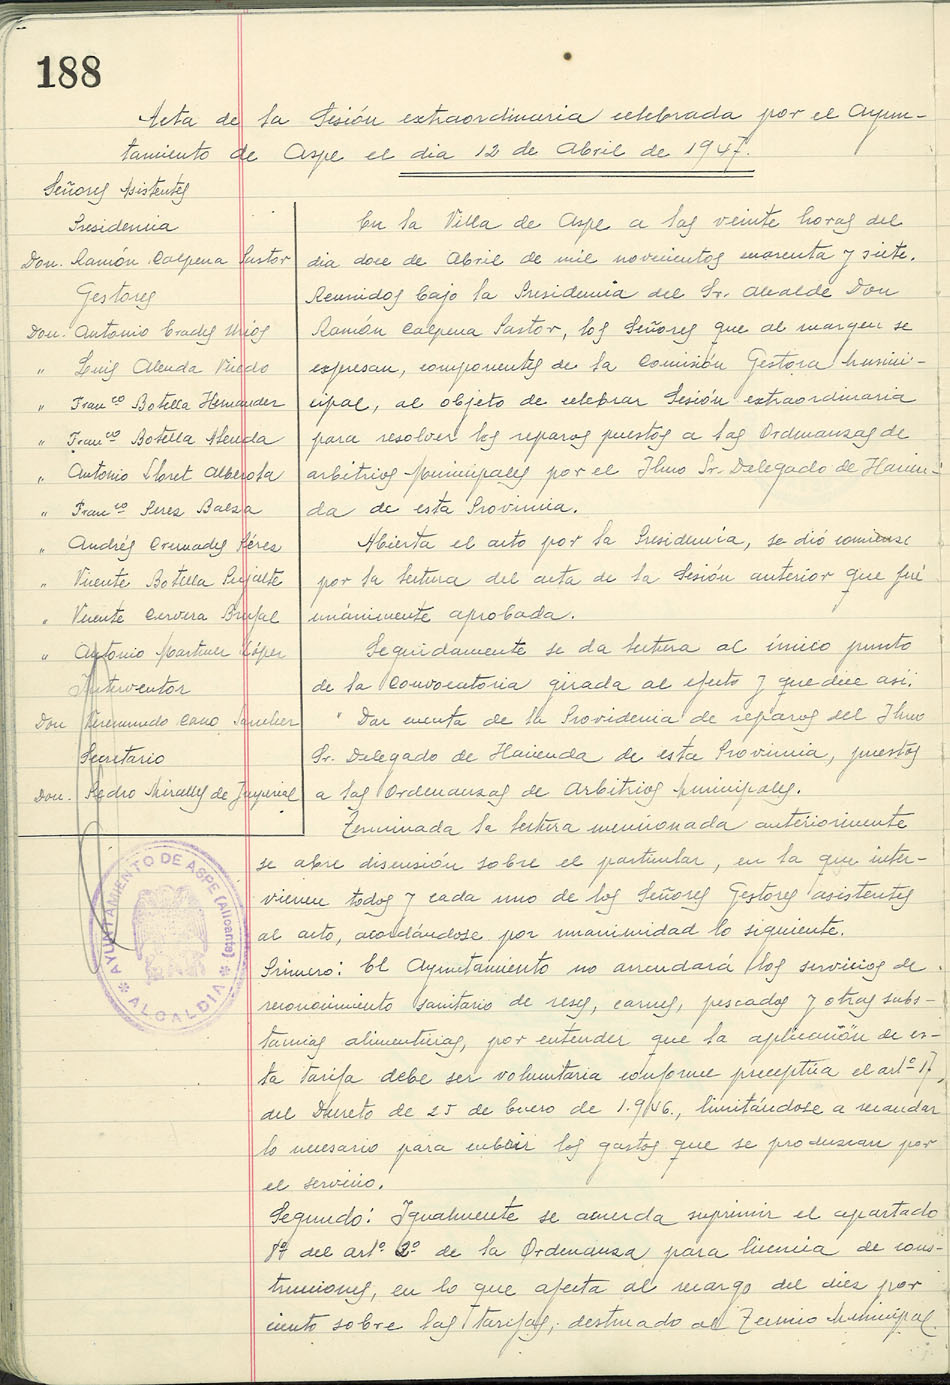 188
Acta de la Sesión extraordinaria celebrada por el Ayun-
tamiento de Aspe el dia 12 de Abril de 1947.
Señores Asistentes
Presidencia
Don. Ramón Calpena Pastor
Gestores
Don. Antonio Erades Urios
" Luis Alenda
" Franco Botella Hernander
" Franco Botella Alenda
" Antonio Lloret Alberola
" Franco Perez Baeza
" Andrés Cremades Pérez
" Vicente Botella Pujalte
" Vicente Cervera Brufal
" Antonio Martinez López
Interventor
Don Veremundo Cano Sanchez
Secretario
Don. Pedro Miralles de Imperial
En la Villa de Aspe a las veinte horas del
dia doce de Abril de mil novecientos cuarenta y siete.
Reunidos bajo la Presidencia del Sr. Alcalde Don
Ramón Calpena Pastor, los Señores que al margen se
expresan, componentes de la Comisión Gestora Munici-
cipal, al objeto de celebrar Sesión extraordinaria
para resolver los reparos puestos a las Ordenanzas de
arbitrios Municipales por el Ilmo Sr. Delegado de Hacien-
da de esta Provincia.
Abierta el acto por la Presidencia, se dió comienzo
por la lectura del acta de la Sesión anterior que fué
unánimente aprobada.
Seguidamente se da lectura al único punto
de la Convocatoria girada al efecto y que dice asi:
" Dar cuenta de la Providencia de reparos del Ilmo
Sr. Delegado de Hacienda de esta Provincia, puestos
a las Ordenanzas de Arbitrios Municipales.
Terminada la lectura mencionada anteriormente
se abre discusión sobre el particular, en la que inter-
vienen todos y cada uno de los Señores Gestores asistentes
al acto, acordándose por unanimidad lo siguiente.
Primero: El Ayuntamiento no arrendará los servicios de
reconocimiento sanitario de reses, carnes, pescados y otras subs-
tancias alimenticias, por entender que la aplicación de es-
ta tarifa debe ser voluntaria conforme preceptúa el artº 17,
del Decreto de 25 de Enero de 1.946., limitándose a recaudar
lo necesario para cubrir los gastos que se produzcan por
el servicio.
Segundo: Igualmente se acuerda suprimir el apartado
del artº 2º de la Ordenanza para licencia de cons-
trucciones, en lo que afecta al recargo del diez por
ciento sobre las tarifas, destinado al Termino Municipal.
AYUNTAMIENTO DE ASPE (Alicante)
* ALCALDIA *